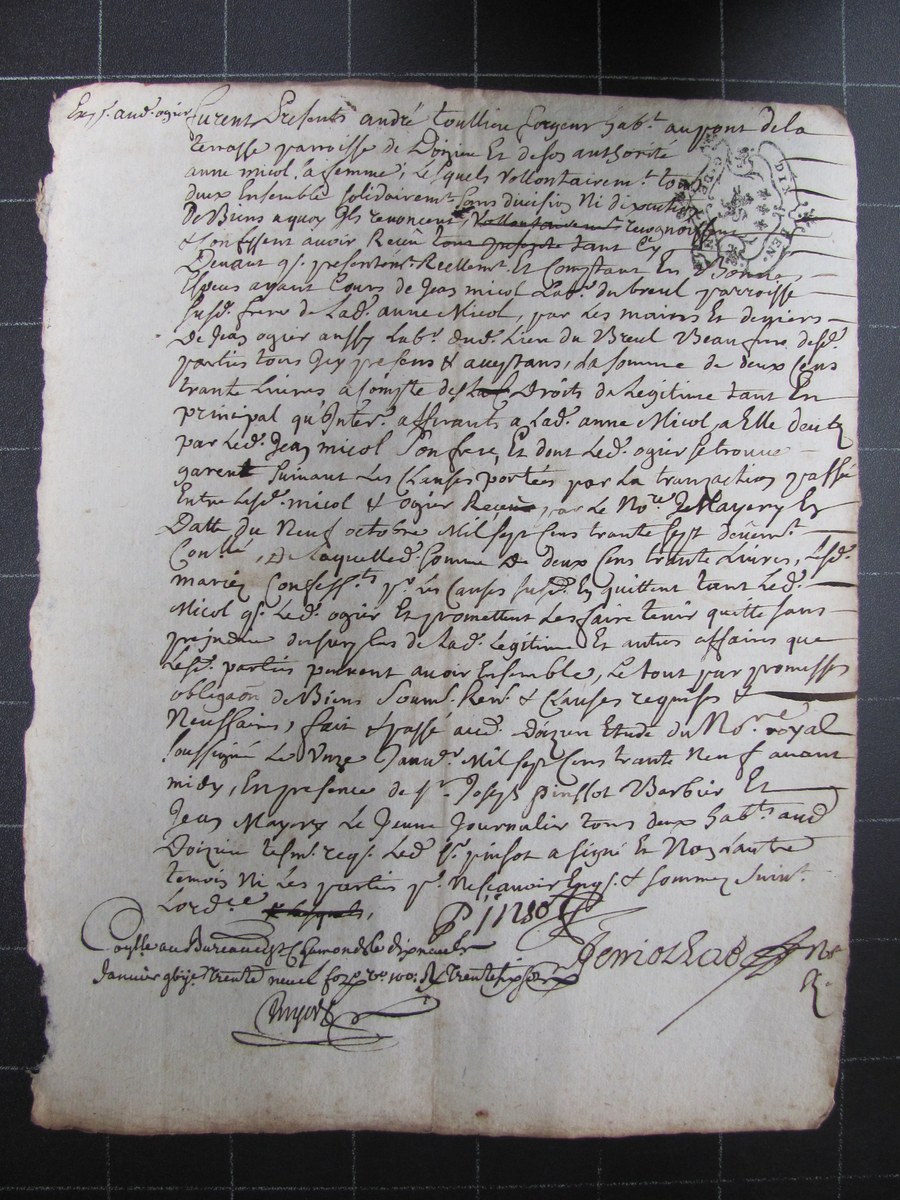 Exp.e aud. ogier
Furent Presents andré toulliere forgeur hab.t au pont de la
terrasse parroisse de Doizieu Et de son authorité
anne micol, sa femme, Lesquels vollontairem.t tous
deux Ensemble sollidairem.t sans division Ni dixcution
De Biens a quoy ils renoncent, vollontairement recognoissent
& Confessent avoir Receu tout presente tant Cy
Devant q. presentem.t Reellem.t Et Comptant En Bonnes
Especes ayant Cours de Jean micol Lab.r du breul parroisse
susd. frere de Lad. anne Micol, par les mains Et deniers
De Jean ogier aussy Lab.r dud. Lieu du Breul Beaufrere desd.
parties tous icy presens & acceptans, La somme de deux Cens
trante Livres a Compte des Droits de Legitime tant En
principal qu'inter. afferants a Lad. anne Micol, a Elle deub
par Led. Jean micol son frere, Et dont Led. ogier se trouve
garent suivant Les Clauses portées par La transaction passée
Entre Lesd. micol & ogier Receüe par Le No.re Mayery En
Datte du Neuf octobre Mil sept Cens trante sept deüem.t
Conllé, De Laquelle d. somme De deux Cens trante Livres, Lesd.
mariez Confess.ts p.r Les Causes susd. En quittent tant Led.
Micol q. Led. ogier Et promettent Les faire tenir quitte sans
prejudice du surplus de Lad. Legitime Et autres affaires que
Lesd. parties peuvent avoir Ensemble, Le tout par promesses
obligaon de Biens soum. Ren. & Clauses requises &
Necessaires, fait & passé aud. Doizieu Etude du No.re royal
soussigné Le Unze Janv.r Mil sept Cens trante Neuf avant
midy, En presence de s.r Joseph pinssot Barbier Et
Jean Mayery Le Jeune Journalier tous deux hab.ts aud.
Doizieu tesm. reqs. Led. s.r pinsot a signé Et Non L'autre
temoin Ni Les parties p.r Ne scavoir Enqs. & sommez suiv.t
Lord.ce
Pinsot
Conlle au Bureau de St Chamond le dixneuf
Janvier 1739 trente neuf fo v.o recu trente six s
DIX DEN.